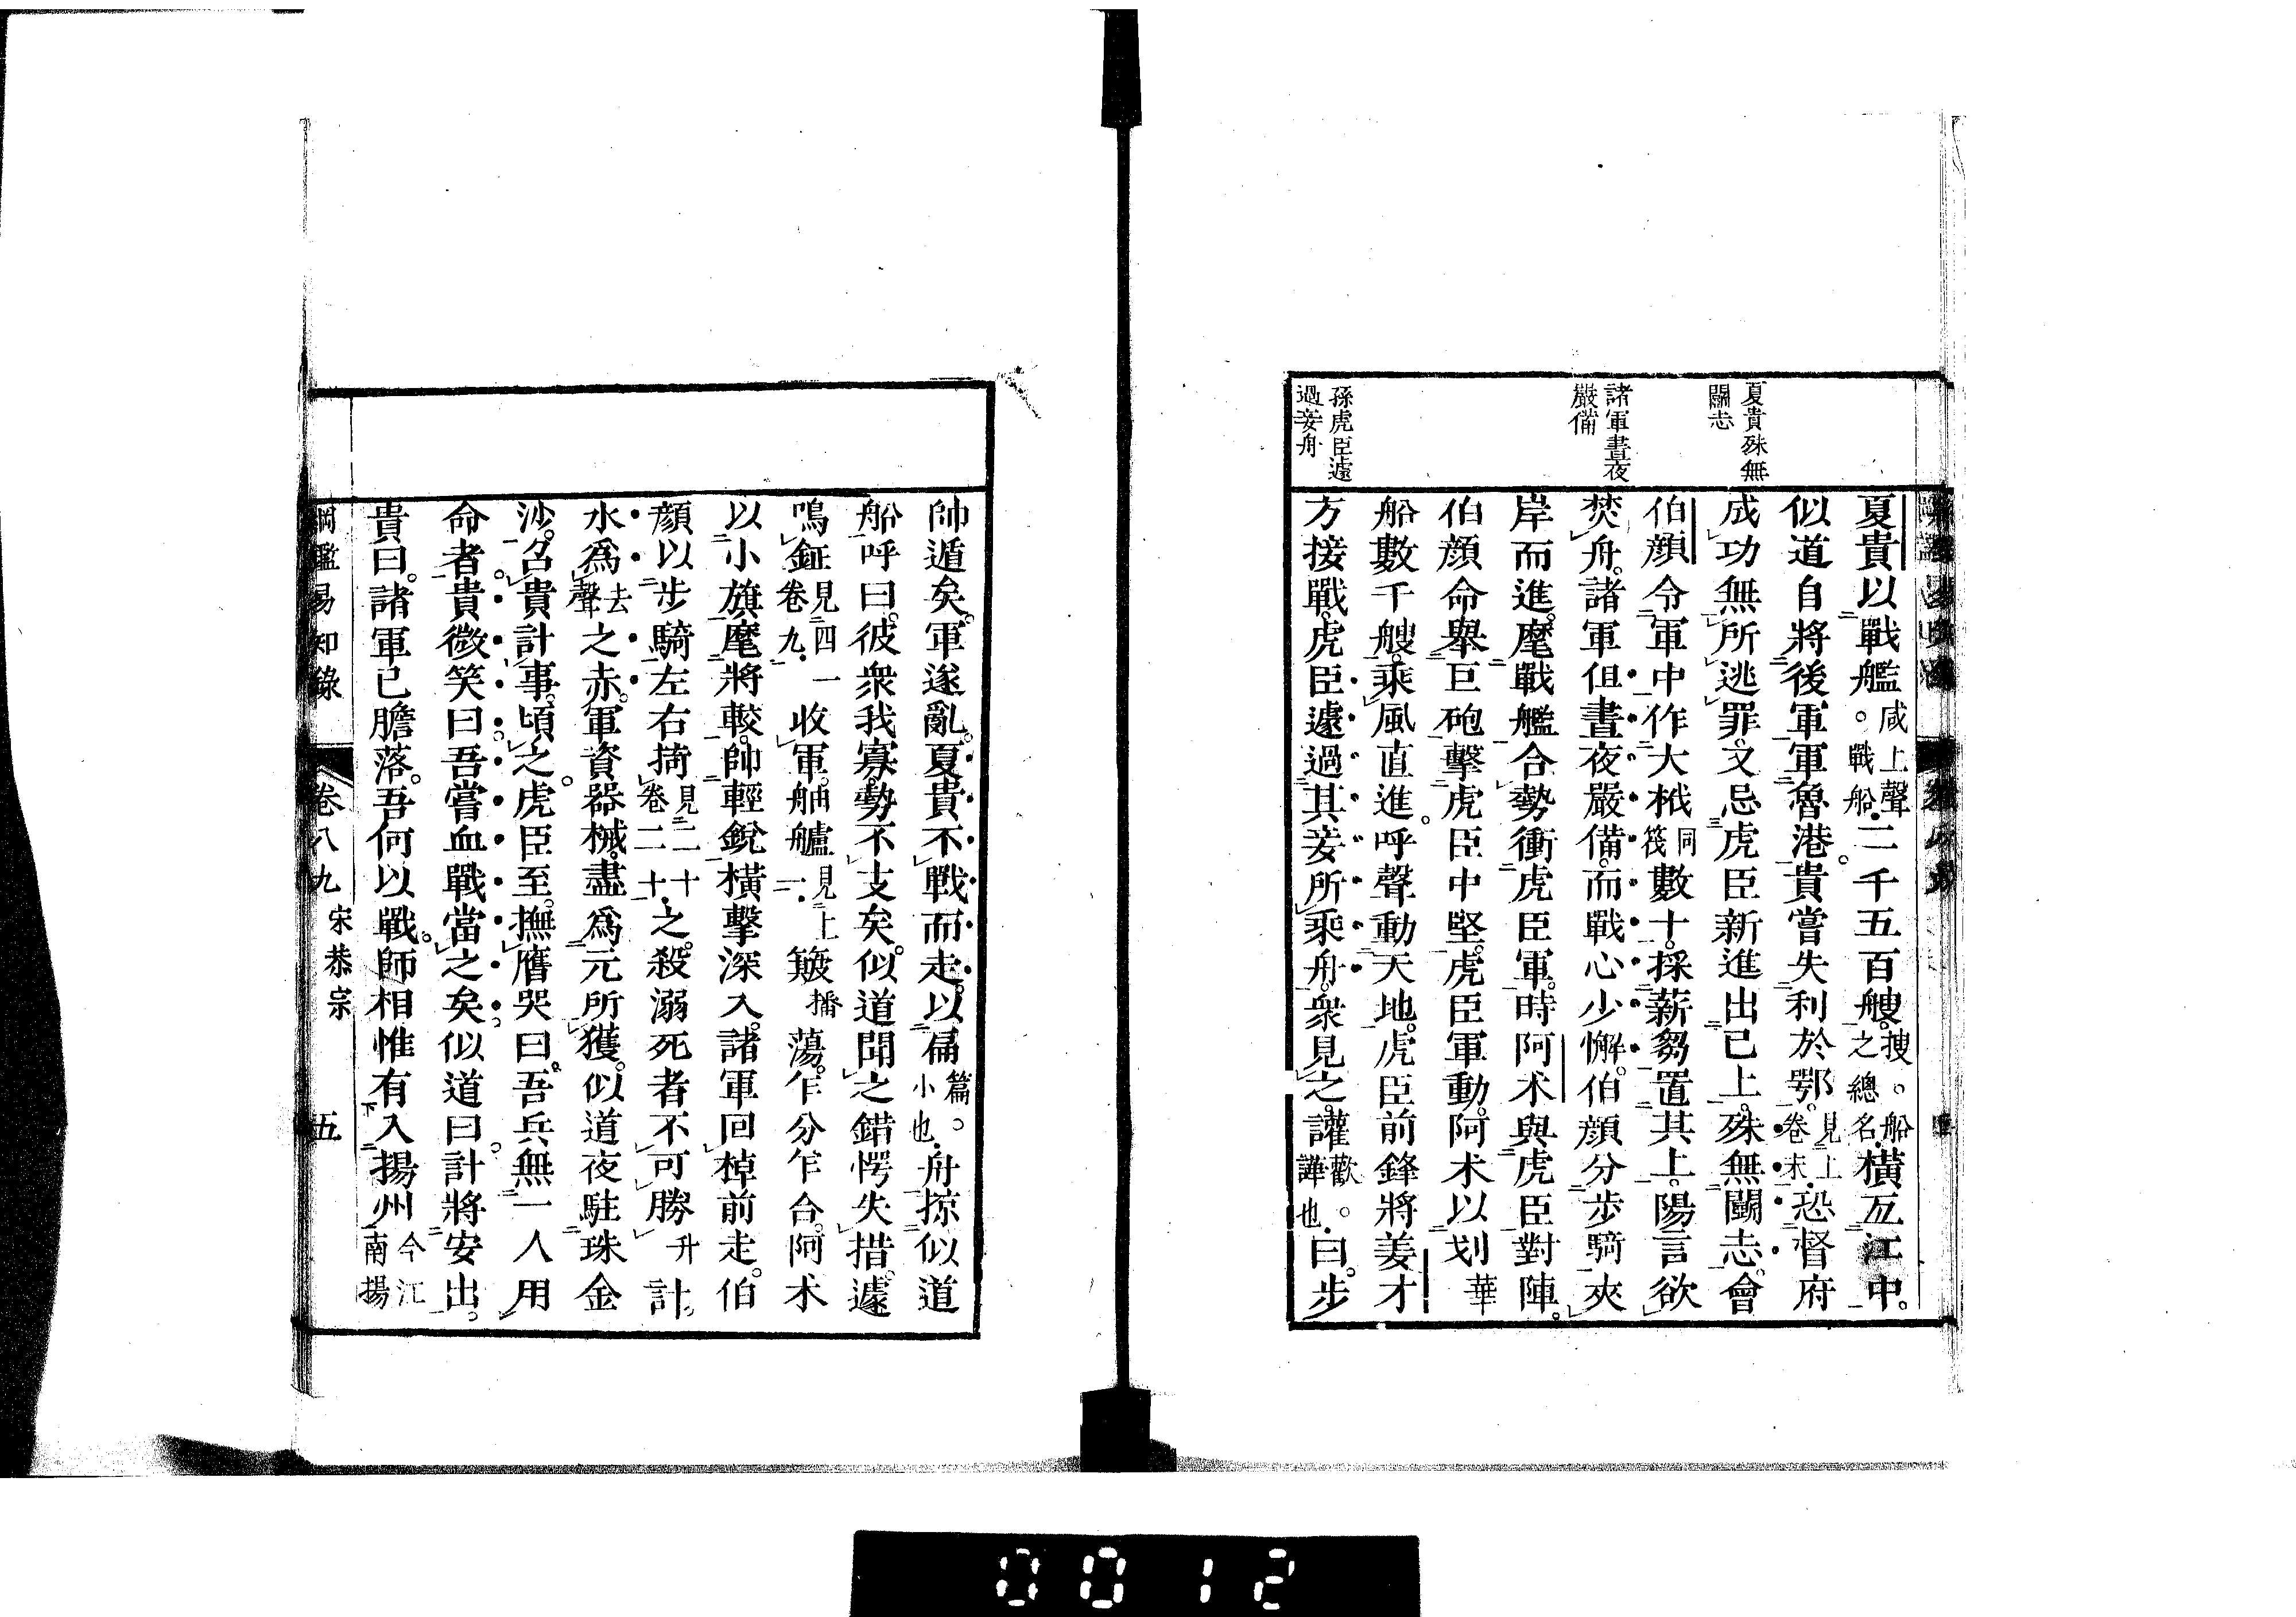 夏貴殊無
鬭志
諸軍晝夜
嚴備
孫虎臣遽
過妾舟
夏貴以戰艦咸上聲。戰船。二千五百艘搜。船之總名。橫亙江中。
似道自將後軍軍魯港。貴嘗失利於鄂見上卷末。恐督府
成功無所逃罪。又忌虎臣新進出己上。殊無鬭志。會
伯顏令軍中作大栰同筏數十。採薪芻置其上。陽言欲
焚舟。諸軍但晝夜嚴備。而戰心少懈。伯顏分步騎夾
岸而進。麾戰艦合勢衝虎臣軍。時阿朮與虎臣對陣。
伯顏命舉巨砲擊虎臣中堅。虎臣軍動。阿朮以划華
船數千艘。乘風直進。呼聲動天地。虎臣前鋒將姜才
方接戰。虎臣遽過其妾所乘舟。衆見之。讙歡。譁也。曰。步
帥遁矣。軍遂亂。夏貴不戰而走。以扁篇。小也。舟掠似道
船呼曰。彼衆我寡。勢不支矣。似道聞之錯愕失措。遽
鳴鉦見四一卷九。收軍。舳艫見上二。簸播蕩。乍分乍合。阿朮
以小旗麾將較。帥輕銳橫擊深入。諸軍回棹前走。伯
顏以步騎左右掎見二十卷二十。之。殺溺死者不可勝升計。
水爲去聲之赤。軍資器械。盡爲元所獲。似道夜駐珠金
沙。召貴計事。頃之。虎臣至。撫膺哭曰。吾兵無一人用
命者。貴微笑曰。吾嘗血戰當之矣。似道曰。計將安出。
貴曰。諸軍已膽落。吾何以戰。師相惟有入揚州今江南揚
綱鑑易知錄 卷八九 宋恭宗 五
0012